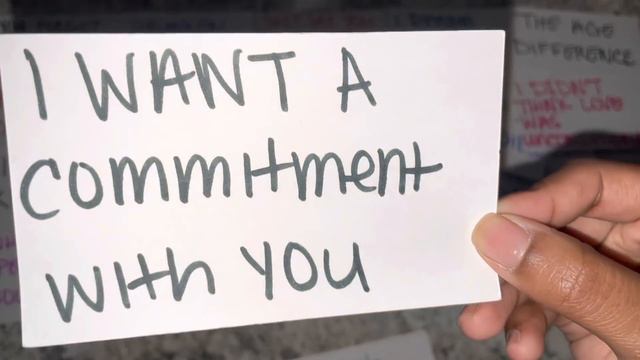 I WANT A
commitment
with YOU
THE AGE
DIFFERENCE
I DIDN'T
THINK LOVE
WAS